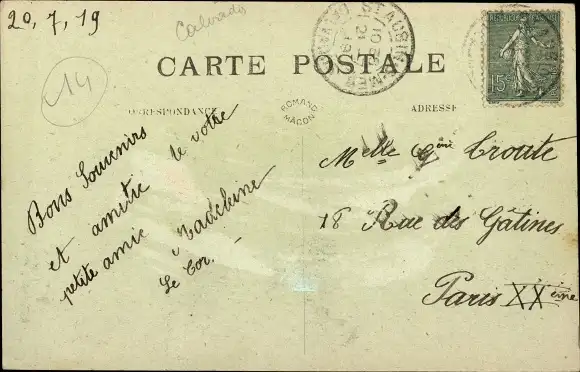 20, 7, 19
Calvados
14
CARTE POSTALE
CORRESPONDANCE
ADRESSE
ROMAND
MACON
ST AUBIN
15
Bons Souvenirs
et amitié de votre
petite amie Madeleine
Le Cor.
Melle Croute
18 Rue des Gâtines
Paris XXème